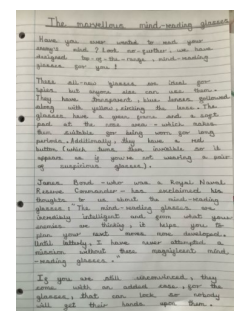 The marvellous mind-reading glasses
Have you ever wanted to read your
enemy's mind? Look no further, we have
designed top-of-the-range, mind-reading
glasses for you!
These all-new glasses are ideal for
spies but anyone else can use them.
They have transparent, blue lenses followed
along with yellow, the lenses. The
glasses have a green frame and a soft
pad at the ear area - which makes
them suitable for being worn for long
periods. Additionally, they have a red
button (which turns them invisible so it
appears as if you're not wearing a pair
of suspicious glasses).
James Bond - who was a Royal Naval
Reserve Commander - has his
thoughts to us about the mind-reading
glasses: "The mind-reading glasses are
incredibly intelligent and from what your
enemies are thinking, it helps you to
plan your next moves more developed.
Until lately, I have never attempted a
mission without these magnificent mind
-reading glasses."
If you are still, they
come with an added case, for the
glasses, that can lock so nobody
will get their hands upon them.